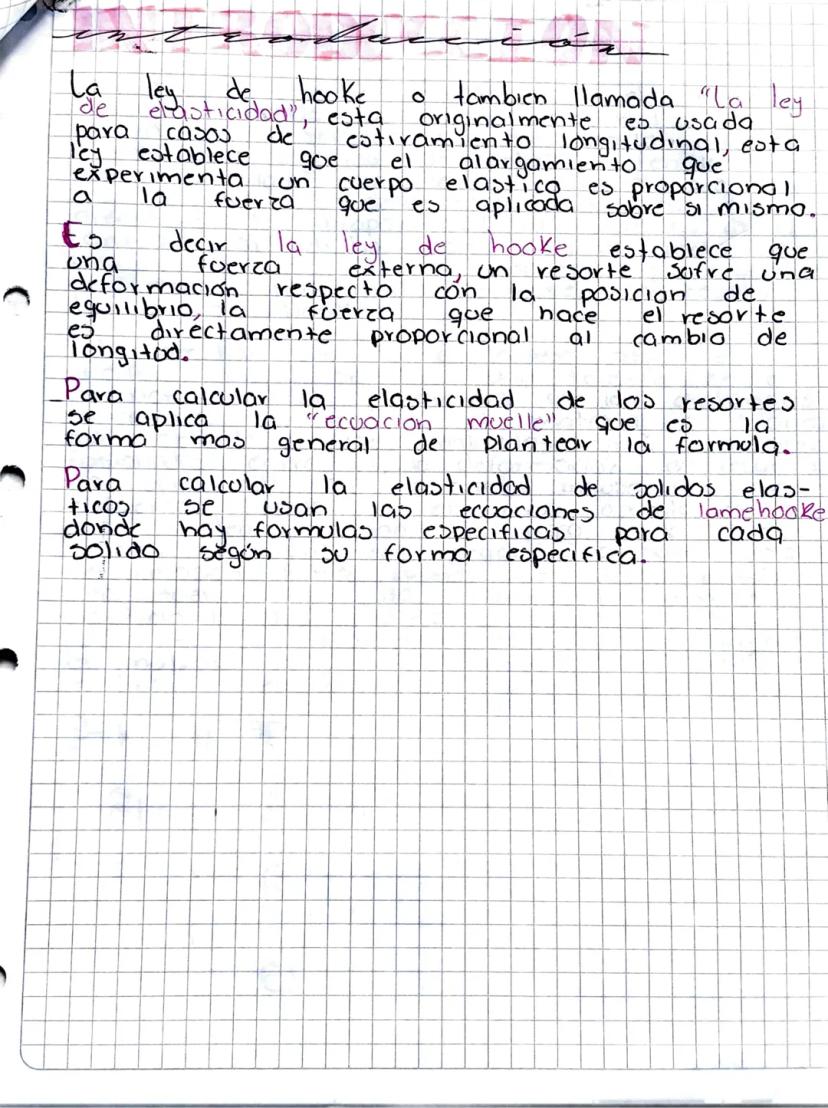 introducción
La ley de hooke o tambien llamada "la ley
de elasticidad", esta originalmente es usada
para casos de estiramiento longitudinal, esta
ley establece que el alargamiento que
experimenta un cuerpo elastico es proporcional
a la fuerza que es aplicada sobre si mismo.
Es decir la ley de hooke establece que
una fuerza externa, un resorte sufre una
deformación respecto con la posicion de
equilibrio, la fuerza que hace el resorte
es directamente proporcional al cambio de
longitud.
Para calcular la elasticidad de los resortes
se aplica la "ecuacion muelle" que es la
forma mas general de plantear la formula.
Para calcular la elasticidad de solidos elas-
ticos se usan las ecuaciones de lamehooke
donde hay formulas especificas para cada
solido según su forma especifica.